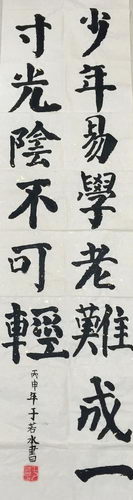 少年易學老難成一
寸光陰不可輕
丙申年子若水書